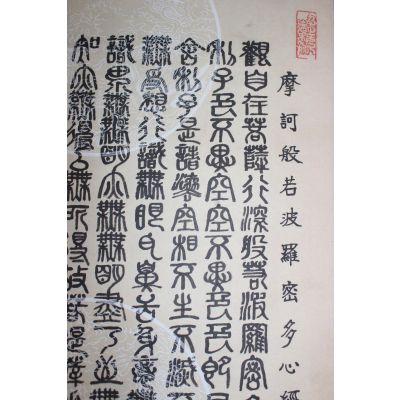 摩訶般若波羅密多心經
觀自在菩薩行深般若波羅密多
利子色不異空空不異色色即
舍利子是諸灋空相不生不滅
無受想行識無眼耳鼻舌身意
識界無無明亦無無明盡乃至
知亦無得以無所得故菩提薩